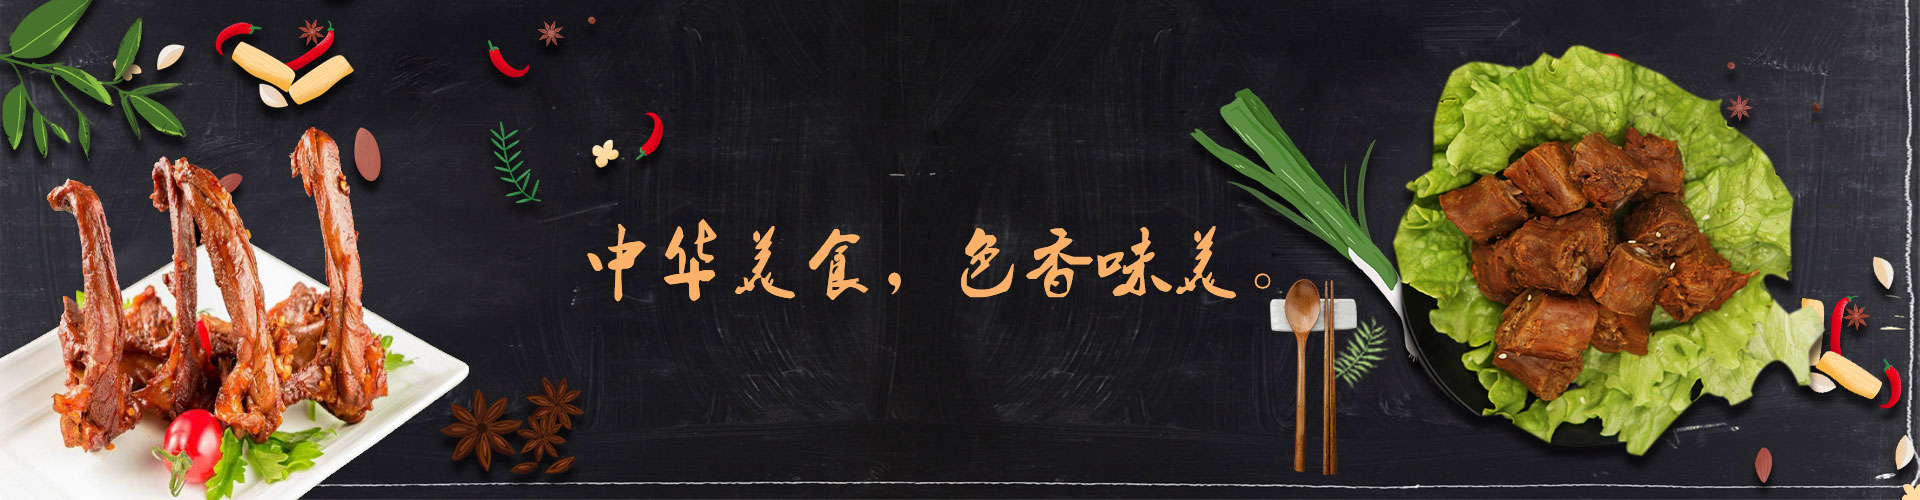 中华美食，色香味美。